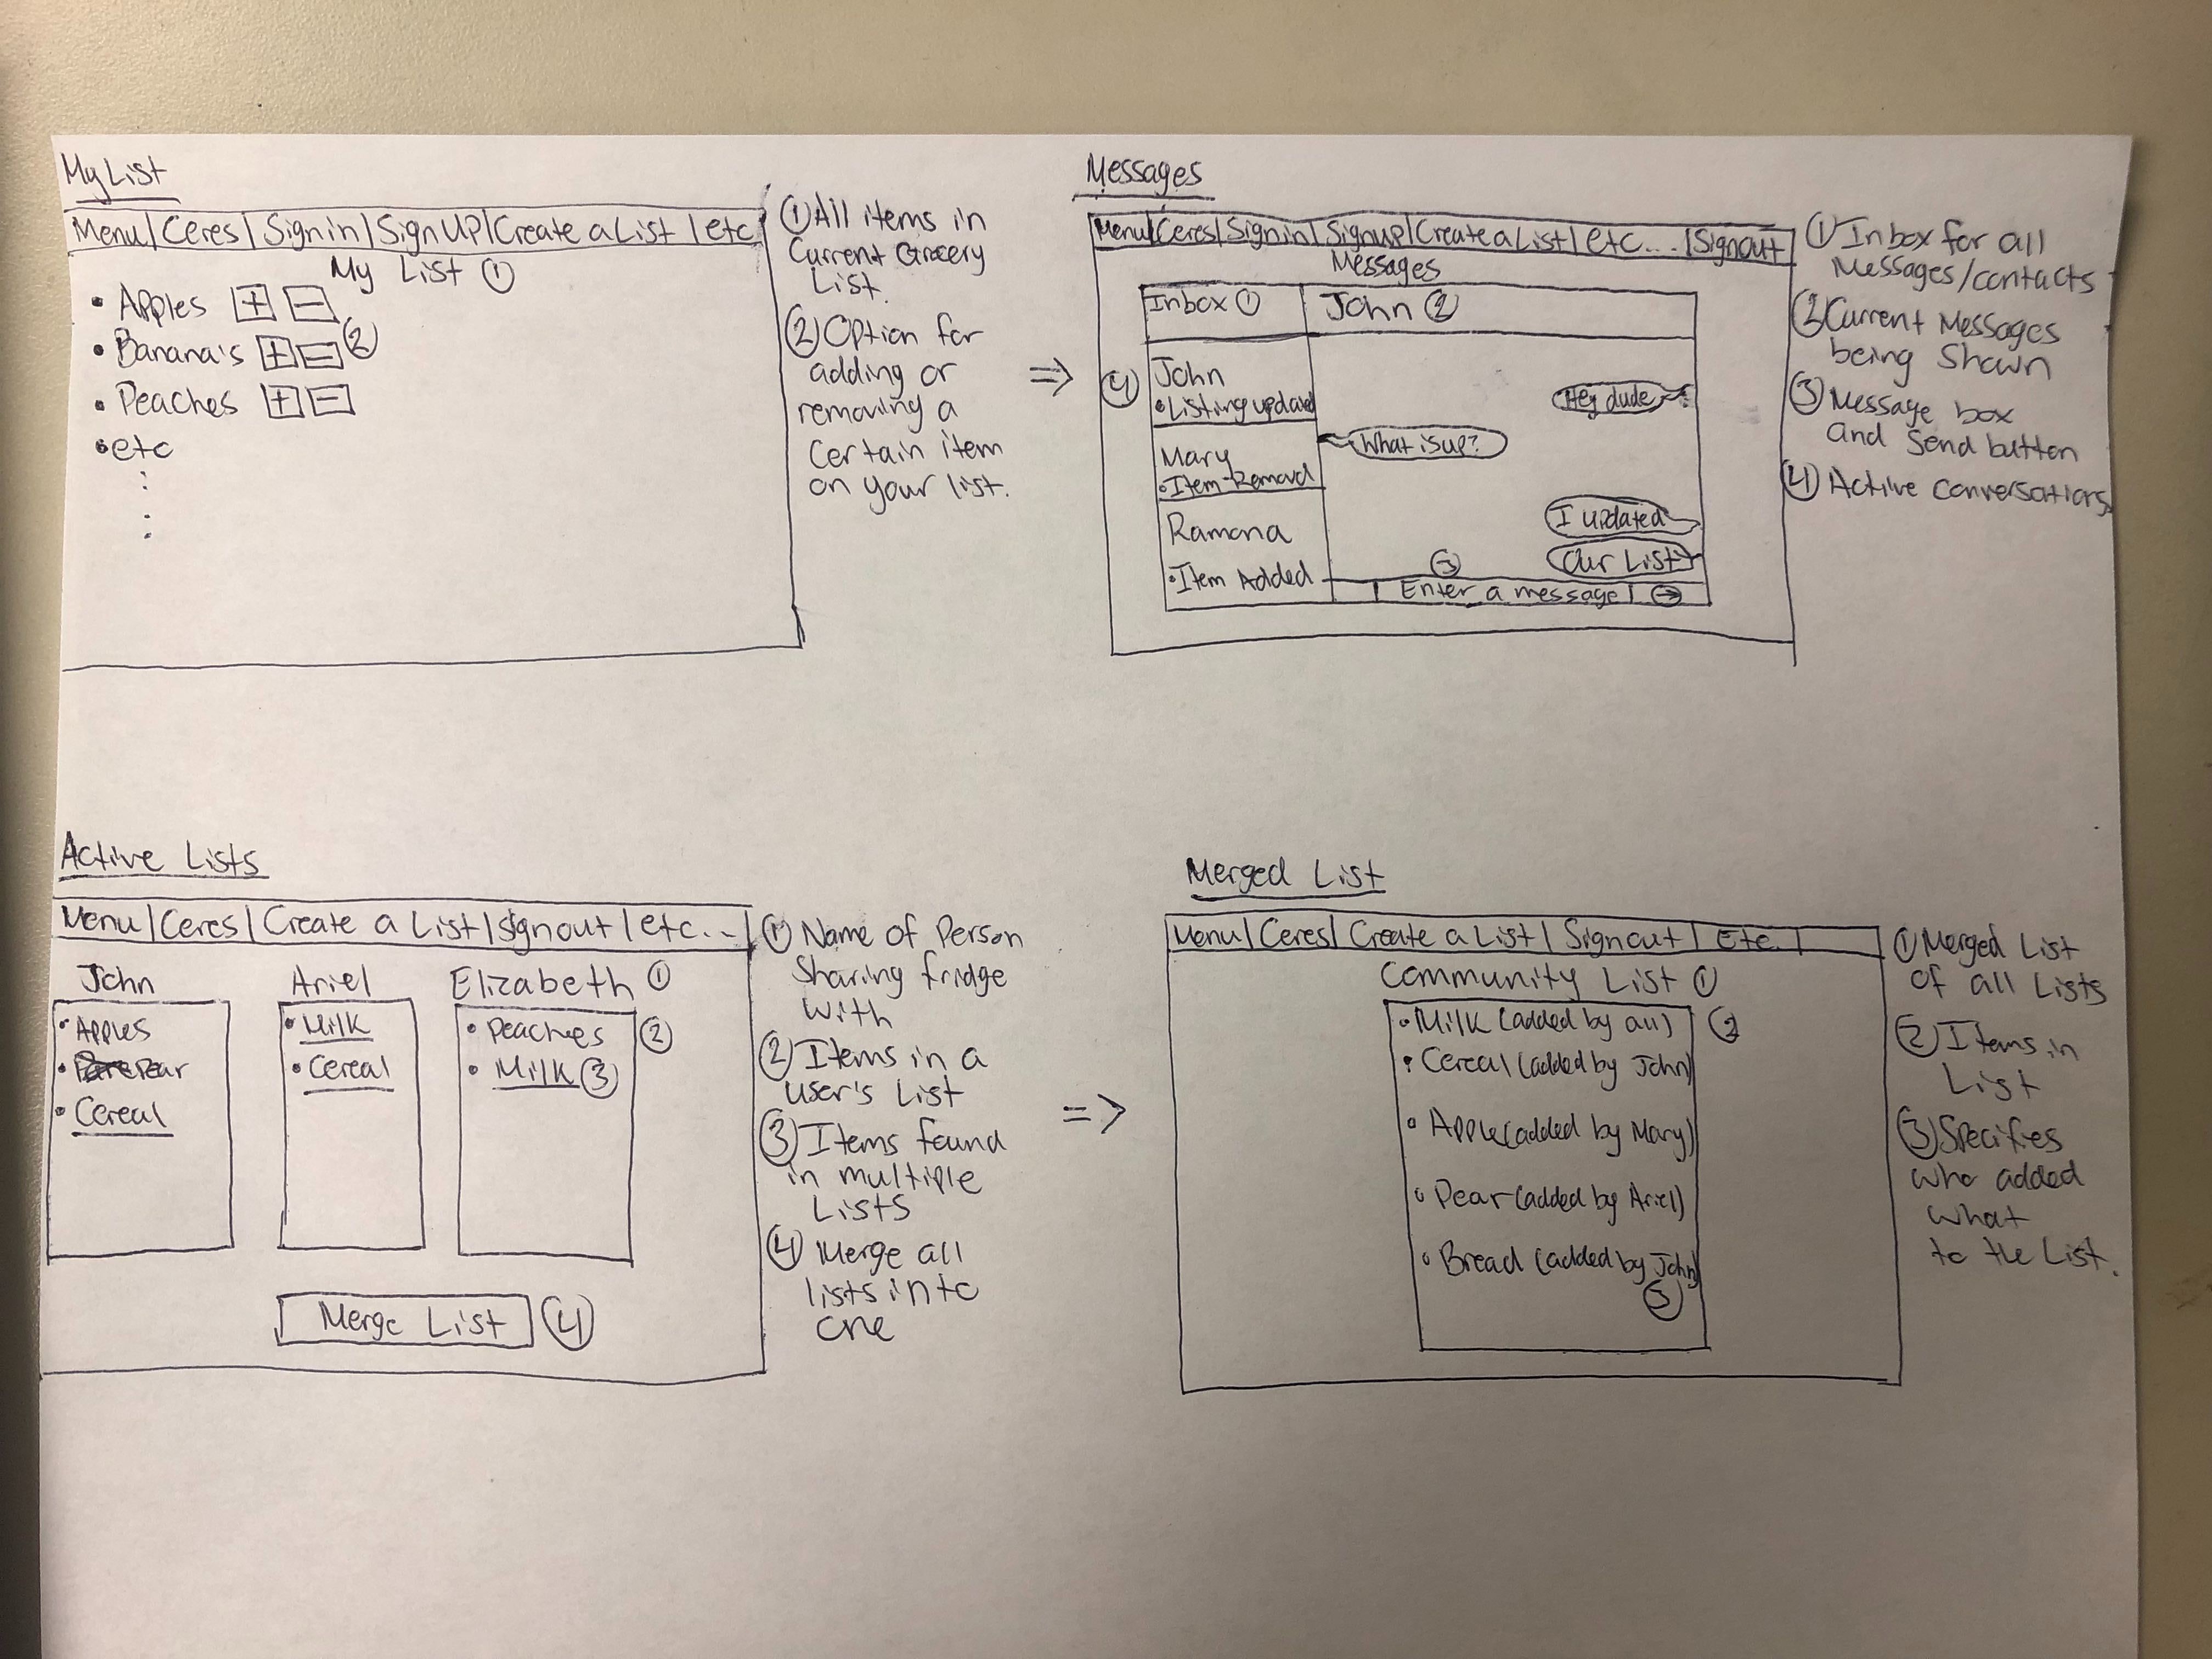 My List
Menu | Ceres | Sign in | Sign UP | Create a List | etc
My List ①
• Apples + −
• Banana's + − ②
• Peaches + −
• etc
① All items in
Current Grocery
List.
② Option for
adding or
removing a
certain item
on your list.
⇒
Messages
Menu | Ceres | Sign in | Signup | Create a List | etc... | Signout
Messages
Inbox ①
John ②
④
John
• Listing updated
Mary
• Item Removd
Ramona
• Item Added
Hey dude
What is up?
I updated
Our List
③
Enter a message →
① Inbox for all
Messages/contacts
② Current Messages
being shown
③ Message box
and send button
④ Active conversations
Active Lists
Menu | Ceres | Create a List | signout | etc...
John
• Apples
• Pear
• Cereal
Ariel
• Milk
• Cereal
Elizabeth ①
• Peaches ②
• Milk ③
Merge List ④
① Name of Person
Sharing fridge
with
② Items in a
user's List
③ Items found
in multiple
Lists
④ Merge all
lists into
one
=>
Merged List
Menu | Ceres | Create a List | Signout | Etc.
Community List ①
• Milk (added by all) ②
• Cereal (added by John)
• Apple (added by Mary)
• Pear (added by Ariel)
• Bread (added by John)
③
① Merged List
of all Lists
② Items in
List
③ Specifies
who added
what
to the List.